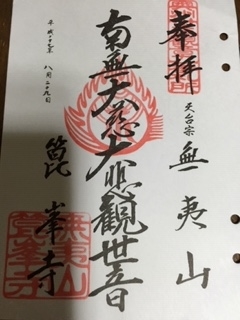 奉拝
天台宗
無夷山
南無大慈大悲觀世音
平成廿七年
八月二十九日
箟峯寺
無夷山
箟峯寺